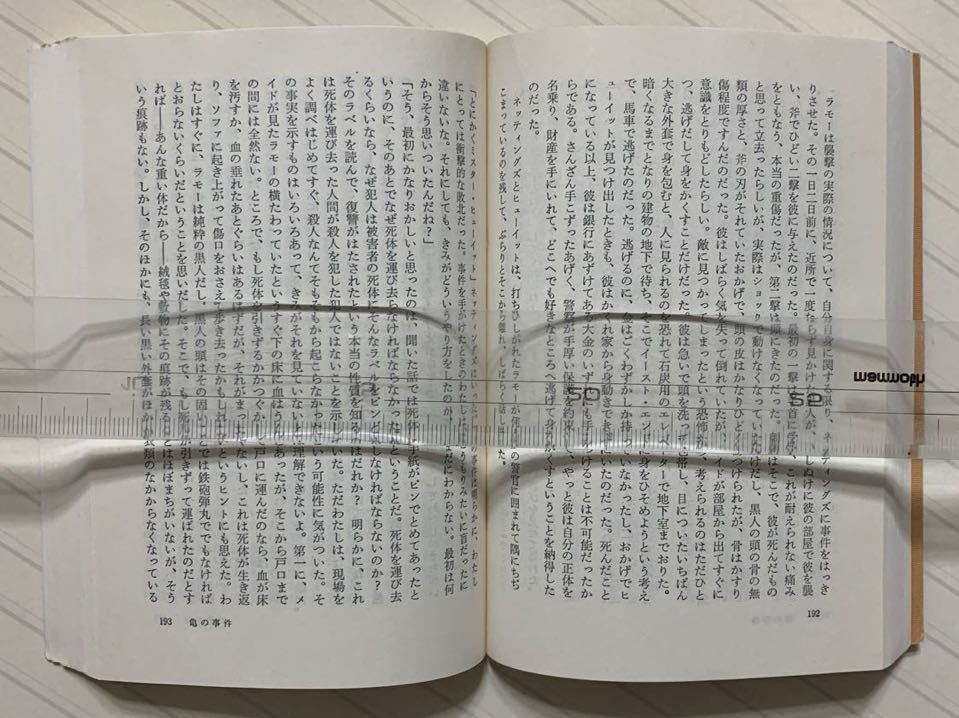 ラモーは襲撃の実際の情況について、自分自身に関する限り、ネッティングズに事件をはっき
りさせた。その一日二日前に、近所で一度ならず見かけた
い、斧でひどい二撃を彼に与えたのだった。最初の一撃は首に受け、これが耐えられない痛み
をともなう、本当の重傷だったが、第二撃は頭にきたのだった。
と思って立去ったらしいが、実際はショックで動けなくなっていただけだし、黒人の頭の骨の無
類の厚さと、斧の刃がそれていたおかげで、頭の皮はかなりひど
傷程度ですんだのだった。彼はしばらく気を失って倒れていたが、
意識をとりもどしたらしい。敵に見つかってしまったという恐怖から、考えられるのはただひと
つ、逃げだして身をかくすことだけだった。彼は急いで頭を洗って包帯し、目についたいちばん
大きな外套で身を包むと、人に見られるのを恐れて石炭用のエレベーターで地下室までおりた。
暗くなるまでとなりの建物の地下で待ち、そこでイースト・エンドに身をひそめようという考え
で、馬車で逃げたのだった。逃げるのに、金はごくわずかしか持っていなかったし、おかげでヒ
ューイットが見つけ出したときも、彼はかくれ家から身動きできずにいたのだった。死んだこと
になっている以上、彼は銀行にあずけてある大金のいずれにも手をつけることは不可能だったか
らである。さんざん手こずったあげく、警察が手厚い保護を約束して、やっと彼は自分の正体を
名乗り、財産を手にいれて、どこへでも好きなところへ逃げて身をかくすということを納得した
のだった。
ネッティングズとヒューイットは、打ちひしがれたラモーが
の警官に囲まれて隅にちぢ
こまっているのを残して、ぶらりとそこから離れ、しばらく話し
192
「とにかくミスター・ヒューイット」ネッティングズ
わたし
にとっては衝撃的な敗北だった。事件を手がけたときのわた
違いないな。それにしても、きみがどういうやり方をしたのか
わからない。最初は何
からそう思いついたんだね？」
「そう、最初にかなりおかしいと思ったのは、聞いた話では死体に手紙がピンでとめてあったと
いうのに、そのあとでなぜ死体を運び去らなければならなかったかということだ。死体を運び去
るくらいなら、なぜ犯人は被害者の死体にそんなラベルをピンどめしなければならないのか？
そのラベルを読んで、復讐がはたされたという本当の性質を知るのはだれか？　明らかに、これ
は死体を運び去った人間が殺人を犯した犯人ではないことを示していた。ただわたしは、現場を
よく調べはじめてすぐ、殺人なんてそもそもから起こらなかったという可能性に気がついた。そ
の事実を示すものはいろいろあって、きみがそれを見ていないとは理解できないよ。第一に、メ
イドが見たラモーの横たわっていたというすぐ下の床に血は
あったが、そこから戸口まで
の間には全然ない。ところで、もし死体を引きずるかかつぐかして戸口に運んだのなら、血が床
を汚すか、血の垂れたあとぐらいはあるはずだが、それがまったくないし、これは死体が生き返
り、ソファに起き上がって傷口をおさえて歩き去ったかもしれないというヒントにも思えた。わ
たしはすぐに、ラモーは純粋の黒人だし、黒人の頭はその固いことでは鉄砲弾丸ででもなければ
とおらないくらいだということを思いだした。そこで、もし死体が引きずって運ばれたのだとす
れば――あんな重い体だから――絨毯や敷物にその痕跡が残ることはほぼまちがいないが、そう
いう痕跡もない。しかし、そのほかにも、長い黒い外套がほかの衣類のなかからなくなっている
193　亀の事件
50
52
mammoth